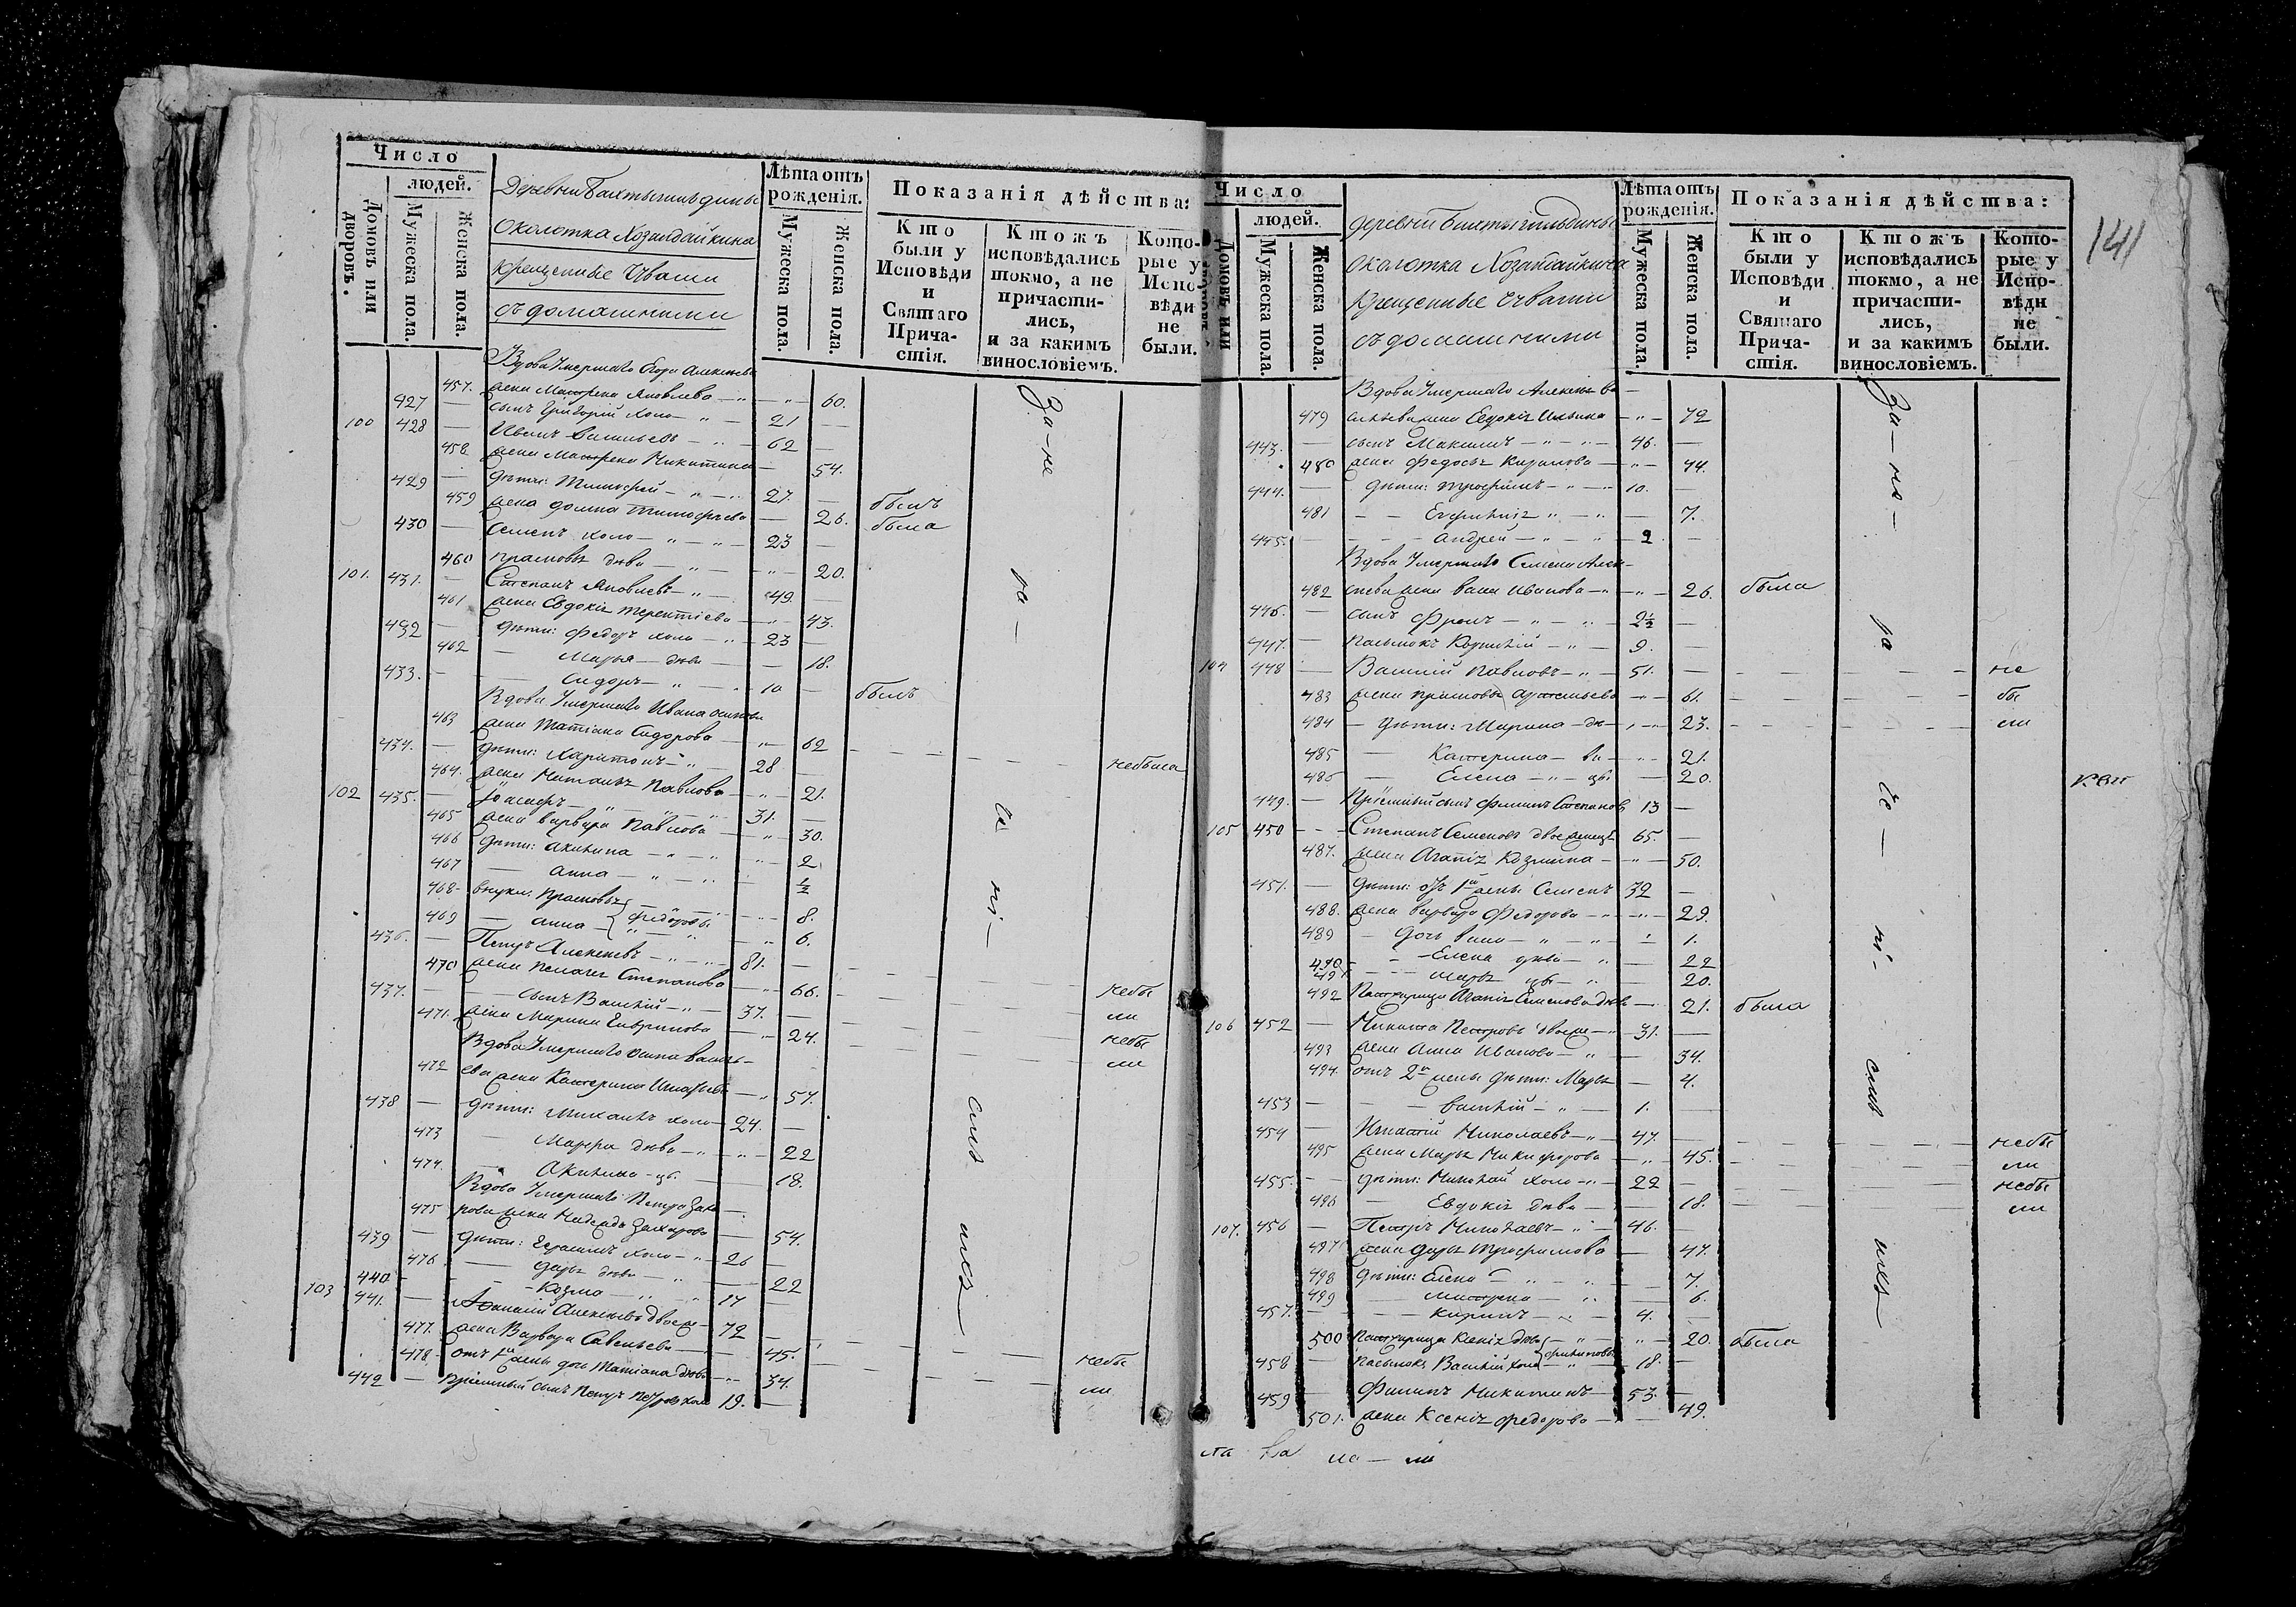 Число
людей.
Домовъ или дворовъ.
Мужеска пола.
Женска пола.
Деревни Бахтыгильдины
околотка Хозандайкина
крещенные Чуваши
съ домашними
Лѣта отъ рожденія.
Мужеска пола.
Женска пола.
Показанія дѣйства:
Кто были у Исповѣди и Святаго Причастія.
Ктожъ исповѣдались токмо, а не причастились, и за какимъ винословіемъ.
Которые у Исповѣди не были.
Вдова Умершаго Егора Алексѣева
457. жена Матрена Яковлева — " — 60.
427 — сынъ Григорій холо — " — 21 —
100 428 — Иванъ Васильевъ — " — 62 —
458 жена Матрена Никитина — 54.
429 — дѣти: Тимофей — " — 27. — былъ
459 жена Домна Тимофѣева — 26. была
430 — Семенъ холо — " — 23 —
460 Прасковья дѣва — " — 20.
101. 431. — Степанъ Яковлевъ — " — 49. —
461 жена Евдокія Терентіева — " — 43.
432 — дѣти: Федоръ холо — " — 23
462 — Марья — дѣв — — 18.
433. — — Сидоръ — " — 10 — былъ
Вдова Умершаго Ивана
463 жена Татіана Сидорова — " — 62 небыла
434. — дѣти: Харитонъ — " — 28 —
464. жена Наталья Павлова — " — 21.
102 435. — Іосифъ — " — 31. —
465 жена Варвара Павлова — " — 30.
466 дѣти: Акилина — " — 2
467 — Анна — " — ½
468 внуки. Прасковья — 8.
469 — Анна — } Федоровы — 6.
436. — Петръ Алексѣевъ — " — 81. —
470 жена Пелагея Степанова — " — 66. небы
437. — — сынъ Василій — " — 37. — ли
471. жена Марина Гаврилова — " — 24. небы
Вдова Умершаго Осипа Василь- ли
472 ева жена Катерина Игнатьева — " 57.
438 — дѣти: Михаилъ холо — 24. —
473 — Марфа дѣва — " — 22
474. — Акилина — — 18.
Вдова Умершаго Петра Заха
475 рова жена Надежда Захарова — 54.
439 — дѣти: Герасимъ холо — " — 26 —
476 — Дарья дѣва — " — 22
440 — — Козма — " — 17 —
103 441. — Афанасій Алексѣевъ двоеже — 72 —
477. жена Варвара Савельева — 45. небы
478. отъ 1й жены дочь Татіана дѣв — 34. ли
442 — Пріемный сынъ Петръ Петровъ холо 19. —
За — не
ра —
че
ні —
емъ
ихъ —
141
Число
людей.
Домовъ или дворовъ.
Мужеска пола.
Женска пола.
деревни Бахтыгильдины
околотка Хозандайкина
Крещенные Чуваши
съ домашними
Лѣта отъ рожденія.
Мужеска пола.
Женска пола.
Показанія дѣйства:
Кто были у Исповѣди и Святаго Причастія.
Ктожъ исповѣдались токмо, а не причастились, и за какимъ винословіемъ.
Которые у Исповѣди не были.
Вдова Умершаго Алексѣя Ва —
479 сильева жена Евдокія Ильина — " — 72
443. — сынъ Максимъ — " — 46. —
480 жена Федосья Кирилова — " — 44.
444. — дѣти: Трофимъ — " — 10. —
481 — — Евфимія " — " — 7.
445. — — Андрей — " — 2 —
Вдова Умершаго Семена Алек-
482 сѣева жена Васа Иванова — " — 26. была
446. — сынъ Фролъ — " — 2½ —
447. — пасынокъ Корнилій — " — 9. —
104 448 — Василій Павловъ — " — 51. — не
483 жена Прасковья — 61. бы
484 — дѣти: Марина — дѣ — 23. ли
485 — Катерина — ви — 21.
486 — Елена — " — цы — 20.
449. — Пріемный сынъ Филипъ Степановъ 13 —
105 450 — Степанъ Семеновъ двоеженецъ 65. —
487. жена Агапія Козмина — " — 50.
451. — дѣти: отъ 1й жены Семенъ 32 —
488. жена Варвара Федорова — " — 29.
489 — дочь Васа — " — 1.
490 — Елена дѣва — " — 22
491 — Марья — " — 20.
492 Агапія Семенова дѣв — 21. была
106 452 — Никита Петровъ двоеже — " 31. —
493 жена Анна Иванова — " — 34.
494. отъ 2й жены дѣти: Марья — 4.
453 — — Василій — " — 1. —
454 — Игнатій Николаевъ — " — 47. — небы
495 жена Марья Никифорова — " — 45. ли
455. — дѣти: Николай холо — " — 22 — небы
496 — Евдокія дѣва — — 18. ли
107. 456 — Петръ Николаевъ — " — 46. —
497 жена Дарья Трофимова — 47.
498 дѣти: Елена — " — 7.
499 — Матрена — " — 6.
457. — — Кирилъ — " — 4. —
500 Ксенія дѣв — " — 20. была
458 — пасынокъ Василій холо } Филиповы — 18. —
459 — Филипъ Никитинъ — 53. —
501. жена Ксенія Федорова — — 49.
За — не —
ра
че —
ні —
емъ
ихъ